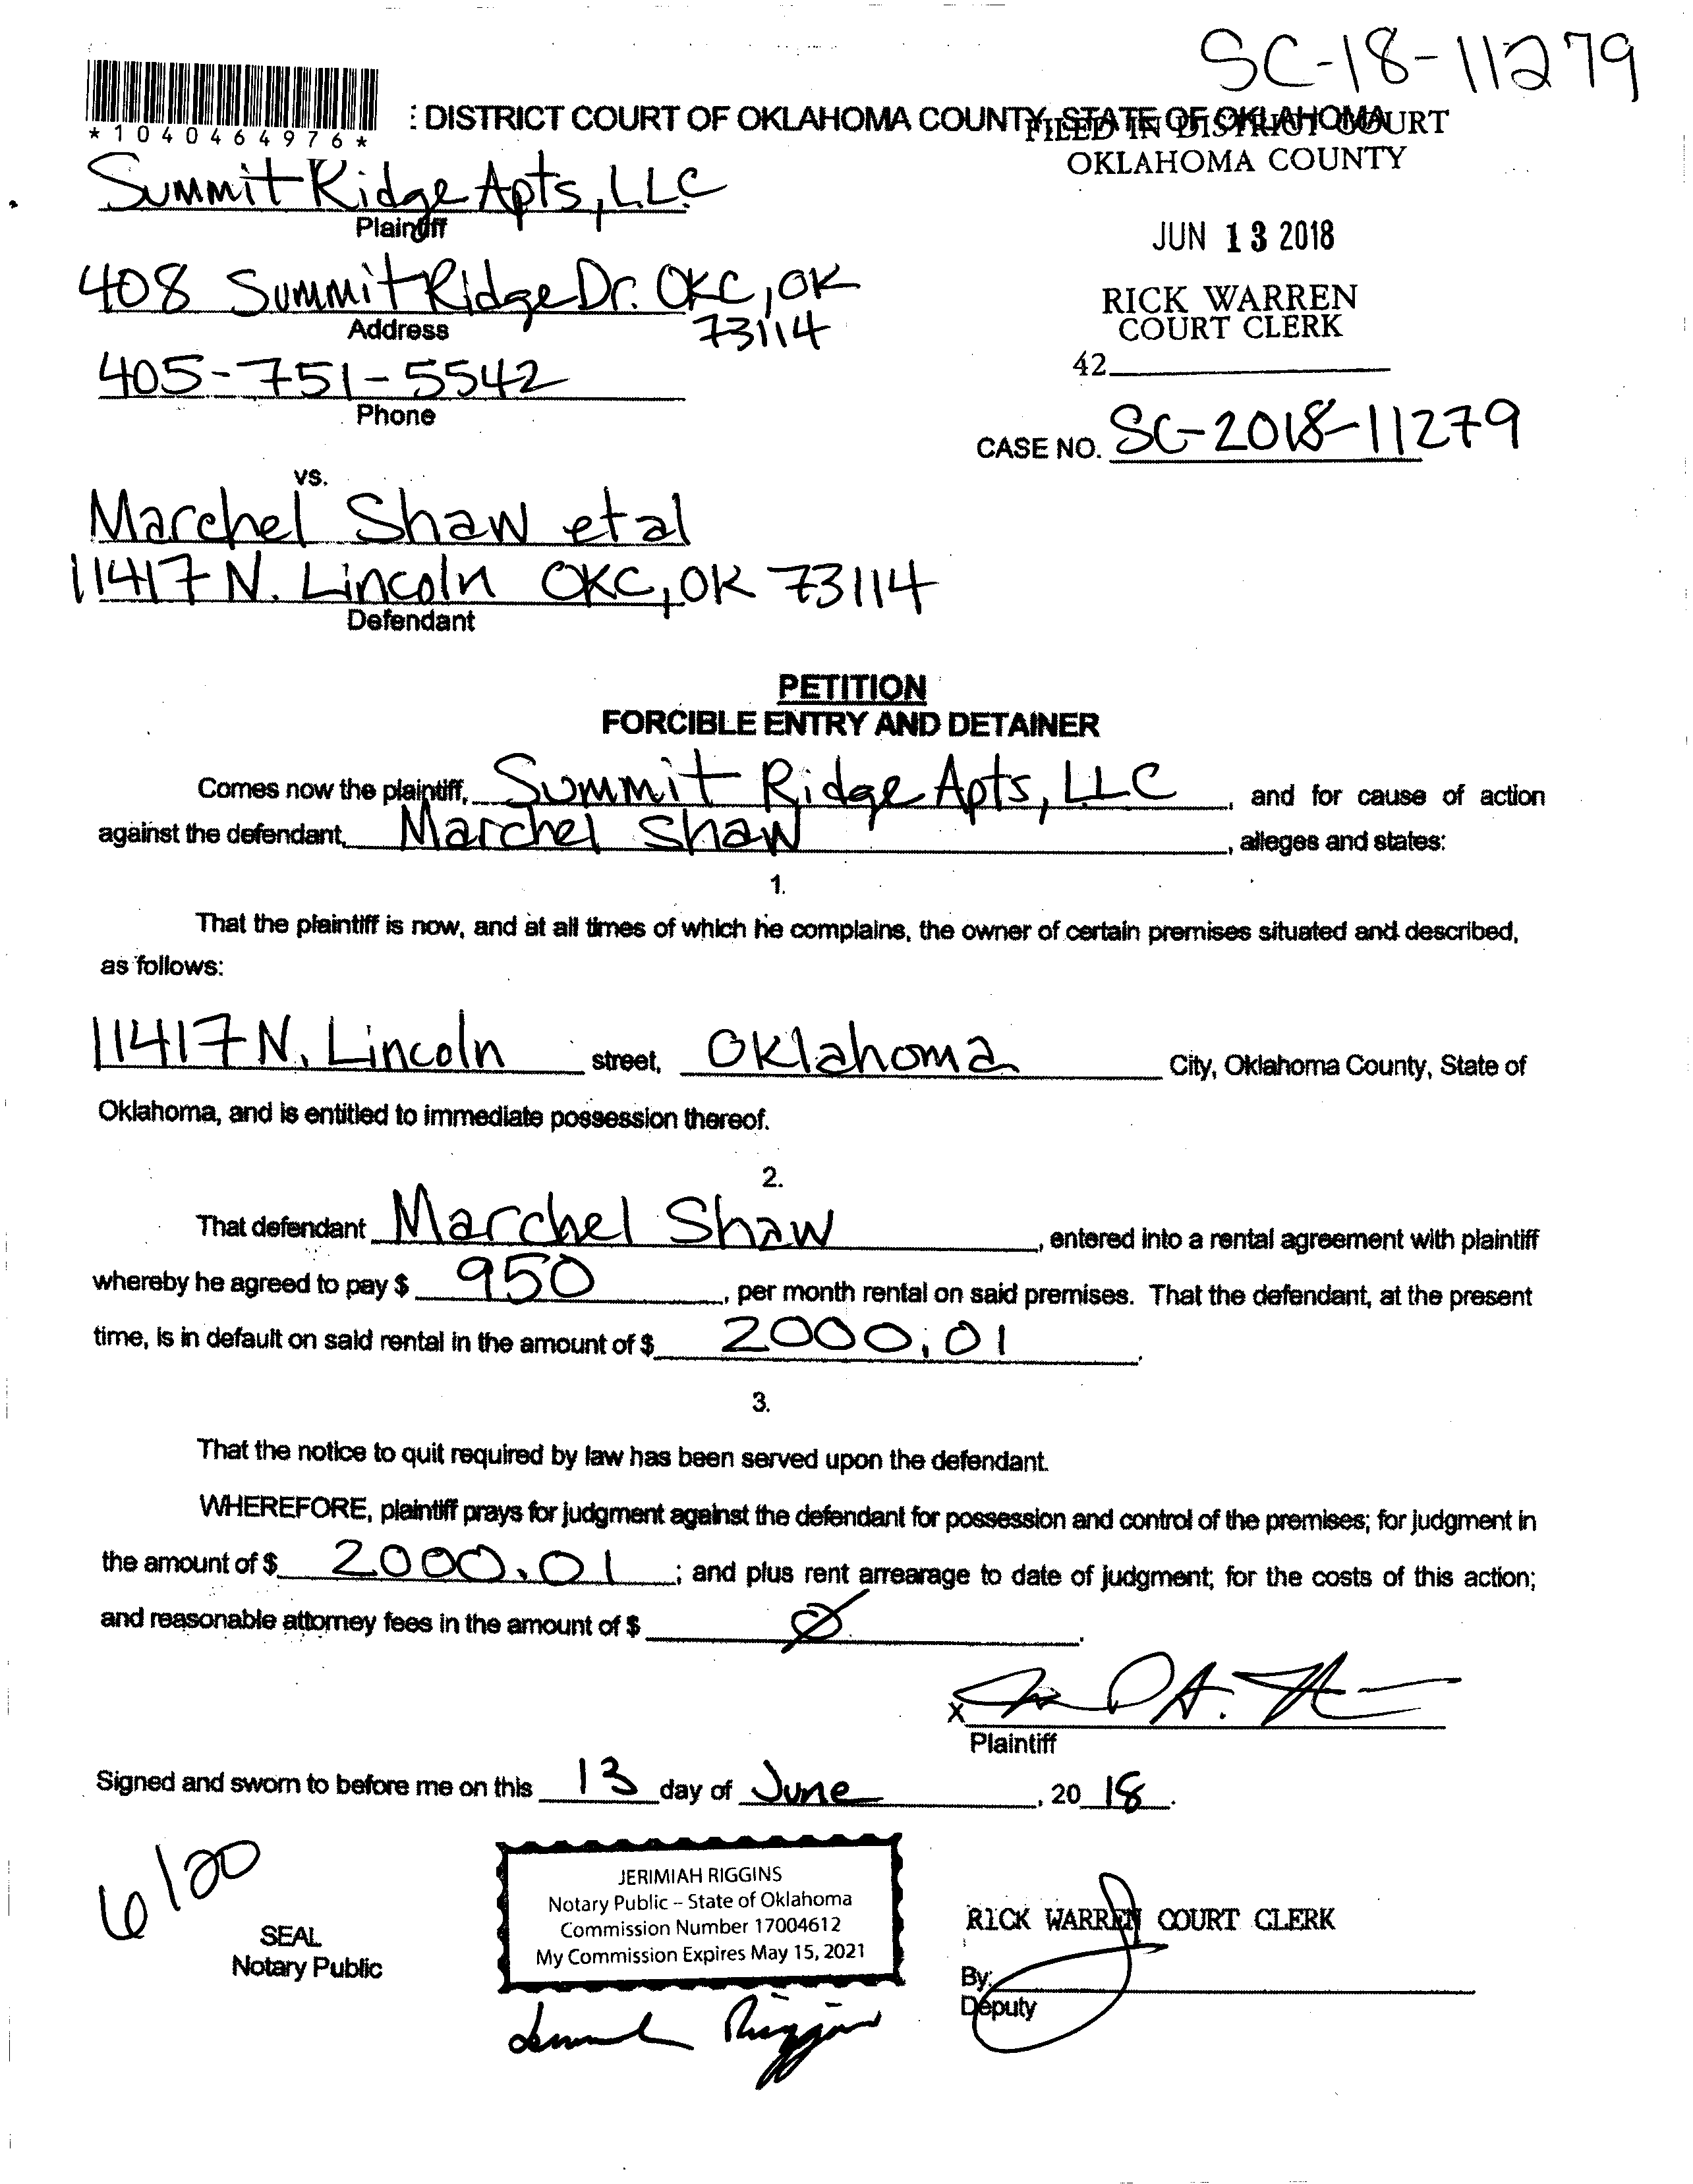 SC-18-11279
*1040464976*
: DISTRICT COURT OF OKLAHOMA COUNTY, STATE OF OKLAHOMA
FILED IN DISTRICT COURT
OKLAHOMA COUNTY
Summit Ridge Apts, LLC
Plaintiff
JUN 13 2018
408 Summit Ridge Dr. OKC, OK
73114
Address
RICK WARREN
COURT CLERK
42
405-751-5542
Phone
CASE NO. SC-2018-11279
vs.
Marchel Shaw et al
11417 N. Lincoln OKC, OK 73114
Defendant
PETITION
FORCIBLE ENTRY AND DETAINER
Comes now the plaintiff, Summit Ridge Apts, LLC, and for cause of action
against the defendant, Marchel Shaw, alleges and states:
1.
That the plaintiff is now, and at all times of which he complains, the owner of certain premises situated and described,
as follows:
11417 N. Lincoln street, Oklahoma City, Oklahoma County, State of
Oklahoma, and is entitled to immediate possession thereof.
2.
That defendant Marchel Shaw, entered into a rental agreement with plaintiff
whereby he agreed to pay $ 950, per month rental on said premises. That the defendant, at the present
time, is in default on said rental in the amount of $ 2000.01.
3.
That the notice to quit required by law has been served upon the defendant.
WHEREFORE, plaintiff prays for judgment against the defendant for possession and control of the premises; for judgment in
the amount of $ 2000.01; and plus rent arrearage to date of judgment; for the costs of this action;
and reasonable attorney fees in the amount of $ Ø.
X
Plaintiff
Signed and sworn to before me on this 13 day of June, 20 18.
6/20
SEAL
Notary Public
JERIMIAH RIGGINS
Notary Public – State of Oklahoma
Commission Number 17004612
My Commission Expires May 15, 2021
RICK WARREN COURT CLERK
By:
Deputy